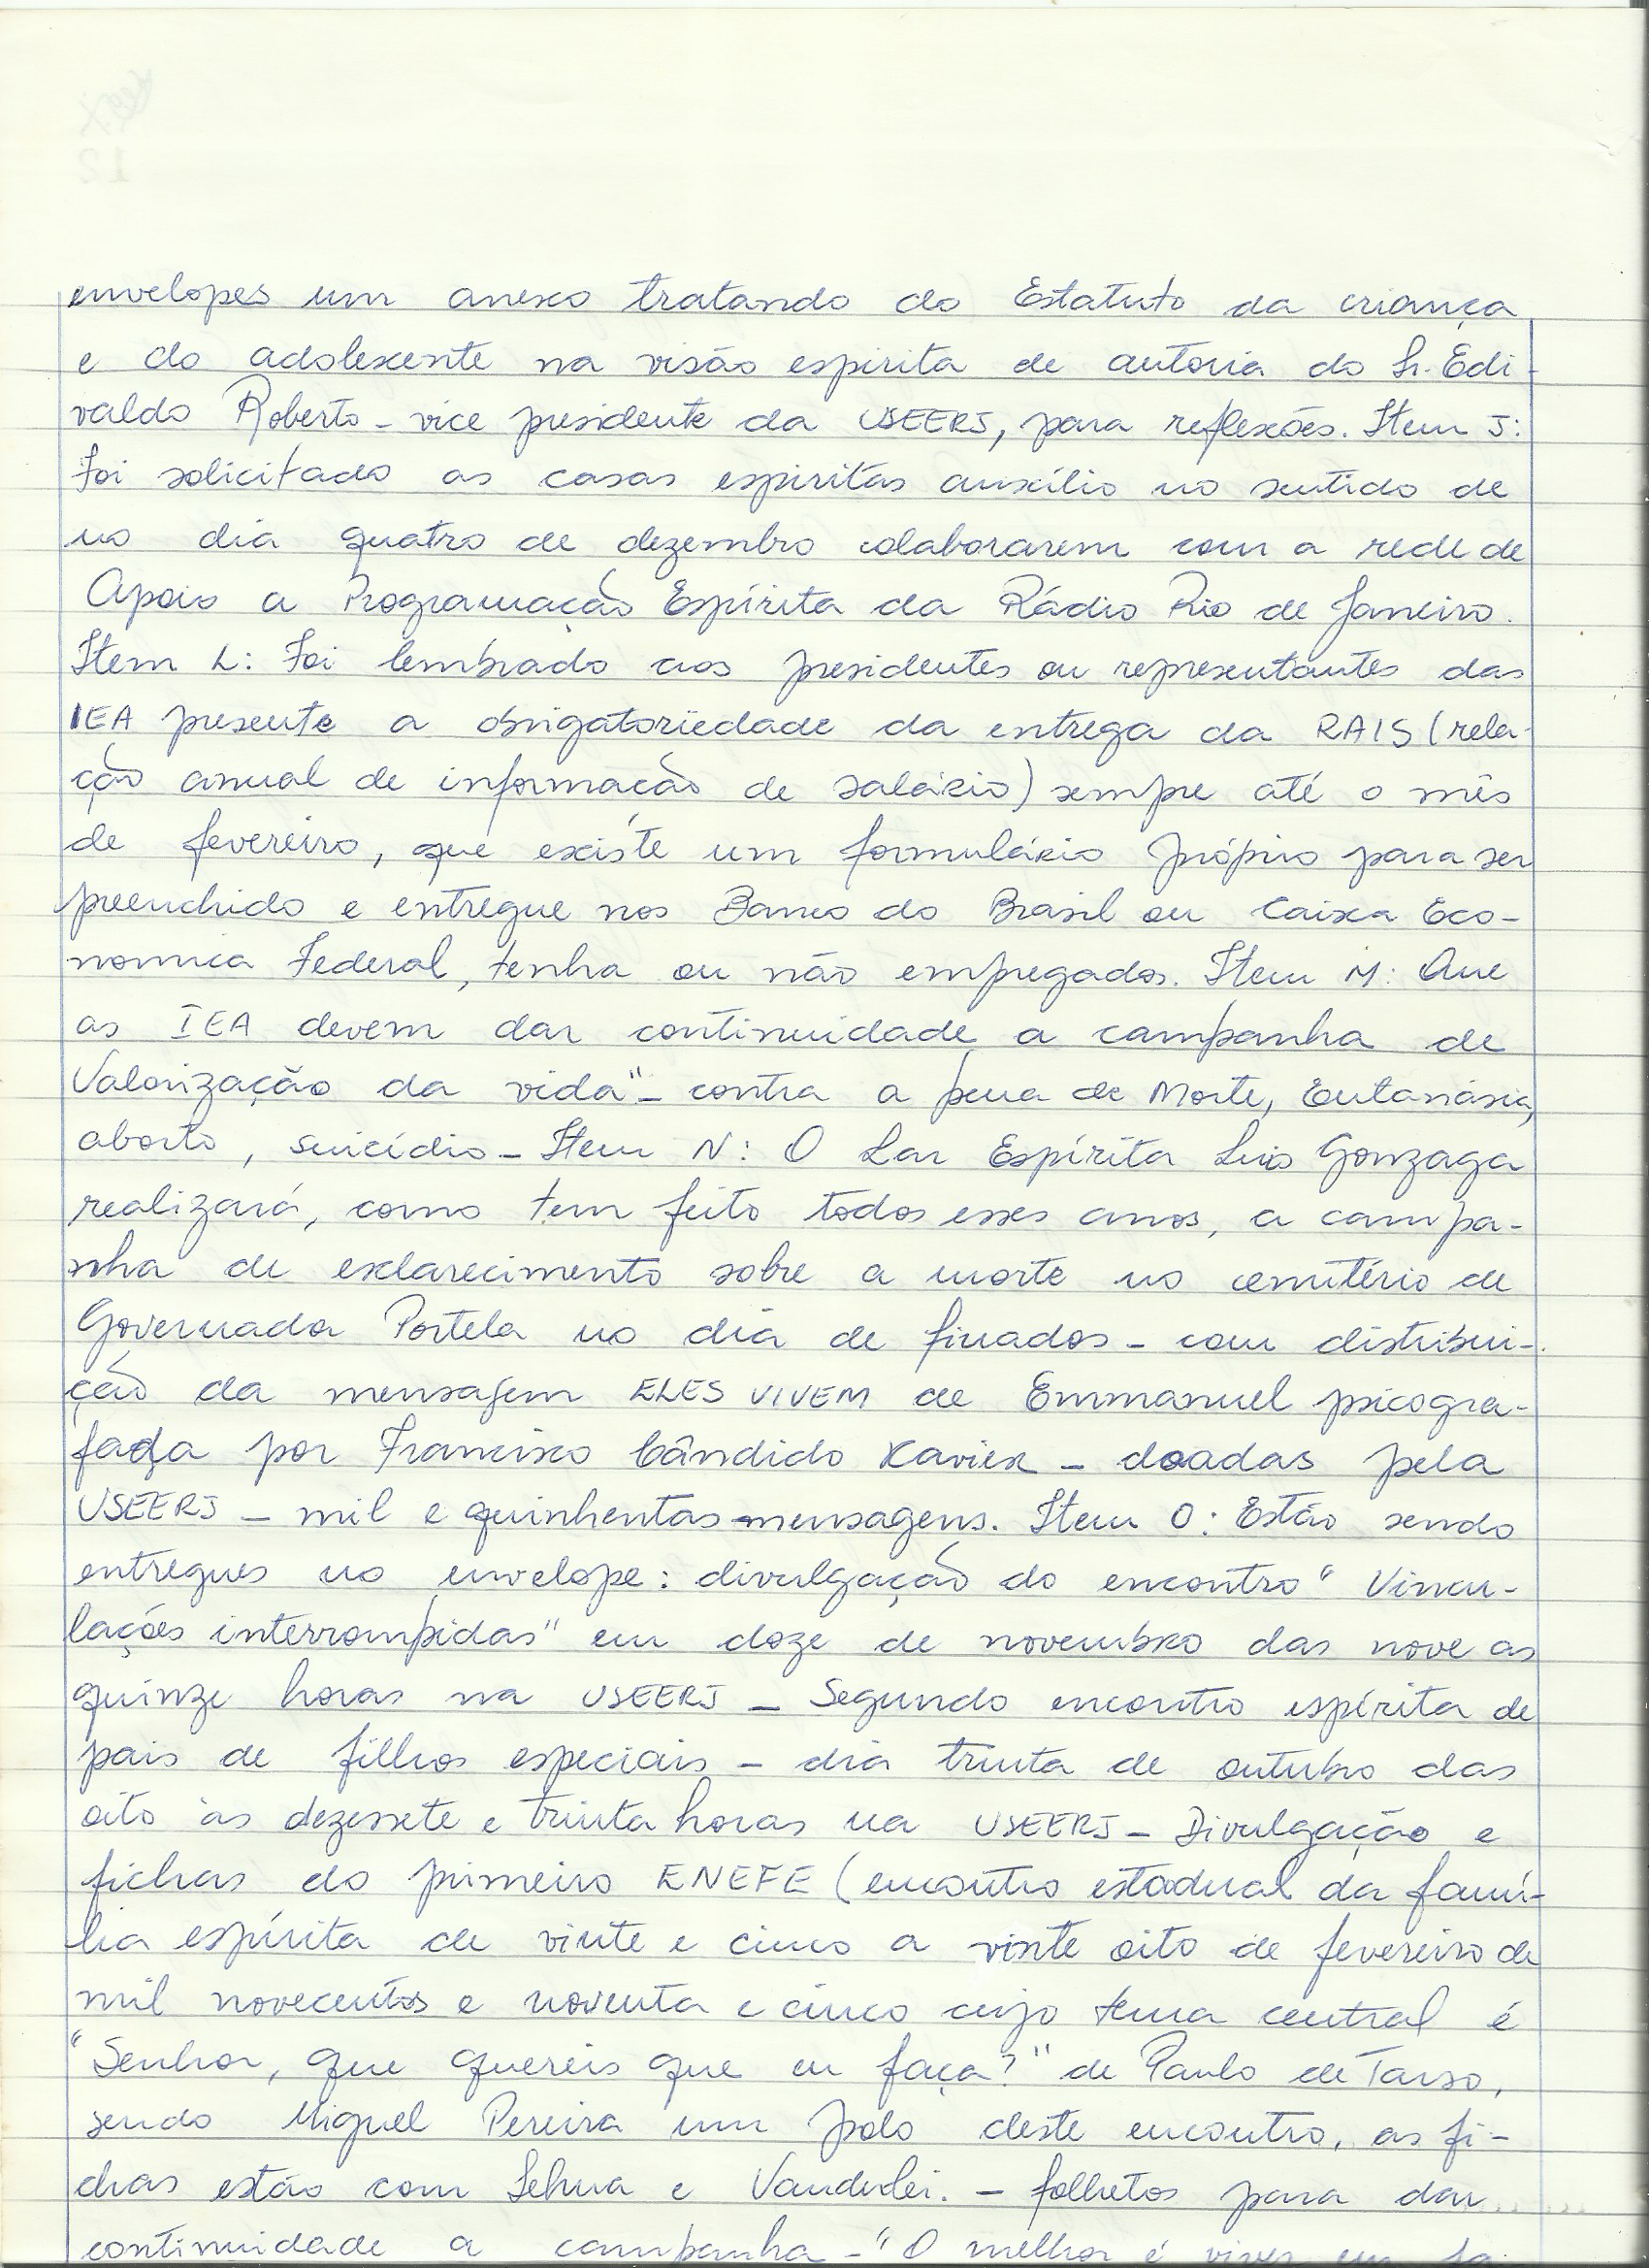 envelopes um anexo tratando do Estatuto da criança
e do adolescente na visão espirita de autoria do Sr. Edi-
valdo Roberto - vice presidente da USEERJ, para reflexões. Item J:
Foi solicitado as casas espiritas auxílio no sentido de
no dia quatro de dezembro colaborarem com a rede de
Apoio a Programação Espírita da Rádio Rio de Janeiro.
Item L: Foi lembrado aos presidentes ou representantes das
IEA presente a obrigatoriedade da entrega da RAIS (rela-
ção anual de informação de salário) sempre até o mês
de fevereiro, que existe um formulário próprio para ser
preenchido e entregue nos Banco do Brasil ou Caixa Eco-
nomica Federal, tenha ou não empregados. Item M: Que
as IEA devem dar continuidade a campanha de
Valorização da vida" - contra a pena de Morte, Eutanásia,
aborto, suicídio - Item N: O Lar Espírita Luis Gonzaga
realizará, como tem feito todos esses anos, a campa-
nha de esclarecimento sobre a morte no cemitério de
Governador Portela no dia de finados - com distribui-
ção da mensagem ELES VIVEM de Emmanuel psicogra-
fada por Francisco Cândido Xavier - doadas pela
USEERJ - mil e quinhentas mensagens. Item O: Estão sendo
entregues no envelope: divulgação do encontro "Vincu-
lações interrompidas" em doze de novembro das nove as
quinze horas na USEERJ - Segundo encontro espírita de
pais de filhos especiais - dia trinta de outubro das
oito às dezessete e trinta horas na USEERJ - Divulgação e
fichas do primeiro ENEFE (encontro estadual da famí-
lia espírita de vinte e cinco a vinte oito de fevereiro de
mil novecentos e noventa e cinco cujo tema central é
"Senhor, que quereis que eu faça?" de Paulo de Tarso,
sendo Miguel Pereira um polo deste encontro, as fi-
chas estão com Selma e Vanderlei. - folhetos para dar
continuidade a campanha - "O melhor é viver em fa-